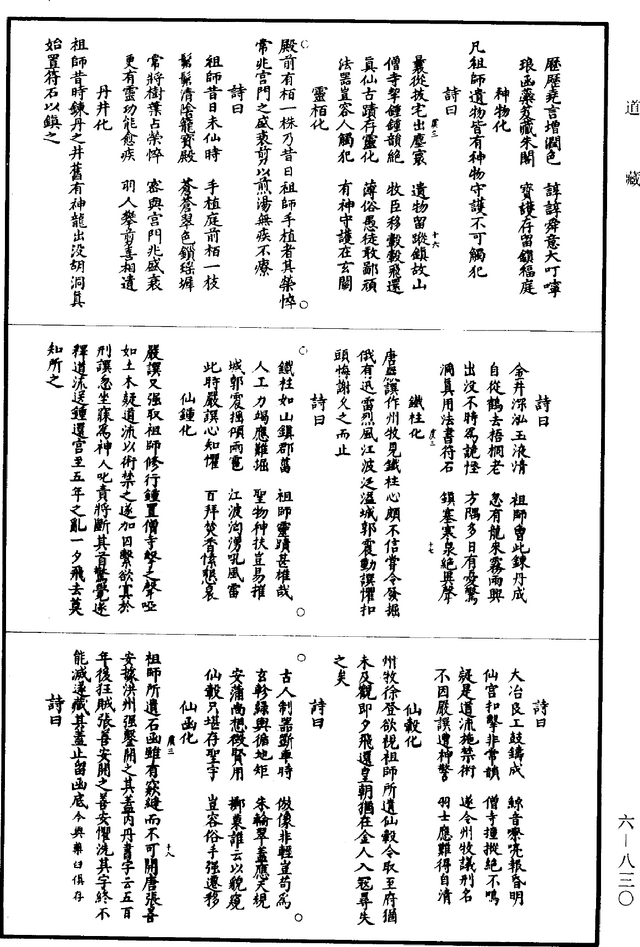 歷歷堯言增潤色　諄諄舜意大叮嚀
琅函蘂笈藏朱閣　寶護存留鎮福庭
神物化
凡祖師遺物皆有神物守護不可觸犯
詩曰
曩從拔宅出塵寰　遺物留蹤鎮故山
僧寺擊鍾鍾韻絶　牧臣移轂轂飛還
真仙古蹟存靈化　薄俗愚徒敢鄙頑
法器豈容人觸犯　有神守護在玄關
靈栢化
殿前有栢一株乃昔日祖師手植者其榮悴
常兆宮門之盛衰剪以煎湯無疾不療
詩曰
祖師昔日未仙時　手植庭前栢一枝
鬱鬱清陰籠寶殿　蒼蒼翠色鎖瑶墀
常將樹葉占榮悴　密與宮門兆盛衰
更有靈功能愈疾　羽人攀剪喜相遺
丹井化
祖師昔時鍊丹之井舊有神龍出没胡洞真
始置符石以鎮之
詩曰
金井深泓玉液清　祖師曾此鍊丹成
自從鶴去梧桐老　忽有龍來霧雨興
出没不時爲詭怪　方隅多日有憂驚
洞真用法書符石　鎮塞寒泉絶異聲
鐵柱化
唐嚴譔作州牧見鐵柱心頗不信嘗令發掘
俄有迅雷烈風江波泛溢城郭震動譔懼扣
頭悔謝乆之而止
詩曰
鐵柱如山鎮郡蕃　祖師靈蹟甚雄哉
人工力竭應難堀　聖物神扶豈易摧
城郭震揺傾雨雹　江波洶湧吼風雷
此時嚴譔心知懼　百拜焚香愫懇哀
仙鍾化
嚴譔又强取祖師修行鍾置僧寺擊之聲啞
如土木疑道流以術禁之遂加囚繫欲寘於
刑譔忽坐寐爲神人叱責將斷其首驚覺遂
釋道流送鍾還宮至五年之亂一夕飛去莫
知所之
詩曰
大冶良工鼓鑄成　鯨音嘹亮報昏明
仙宮扣擊非常韻　僧寺撞摐絶不鳴
疑是道流施禁術　遂令州牧議刑名
不因嚴譔遭神警　羽士應難得自清
仙轂化
州牧徐登欲視祖師所遺仙轂令取至府猶
未及觀即夕飛還皇朝猶在金人入冦尋失
之矣
詩曰
古人制器斲車時　倣像非輕豈苟爲
玄軫緑輿循地矩　朱輪翠蓋應天規
安蒲尚想徴賢用　擲菓誰云以貌窺
仙轂只堪存聖宇　豈容俗手强遷移
仙函化
祖師所遺石函雖有窽縫而不可開唐張善
安據洪州强鑿開之其蓋内丹書字云五百
年後狂賊張善安開之善安懼洗其字終不
能滅遂藏其蓋止留函底今與藥臼俱存
詩曰
廣三
十六
廣三
十七
廣三
十八
道藏
六—八三〇